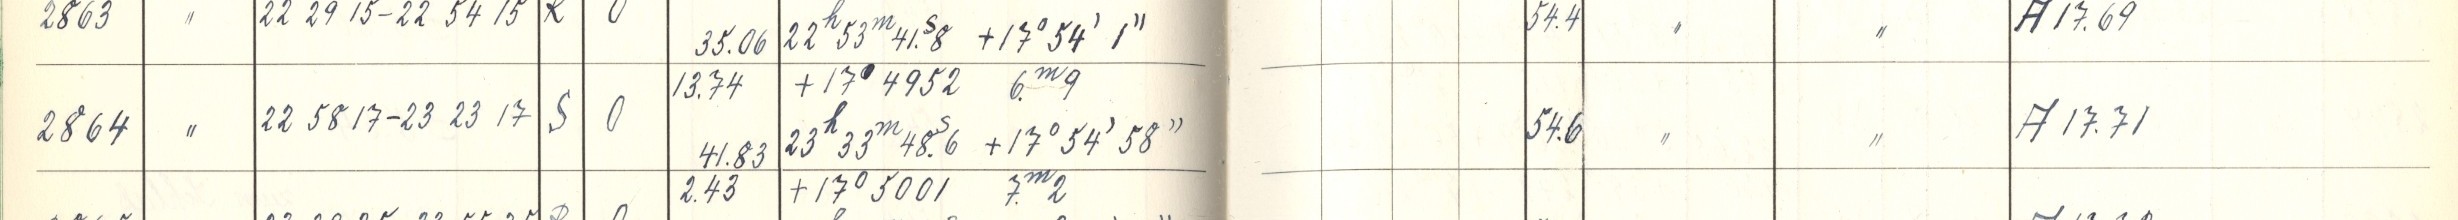 2863 " 22 29 15-22 54 15 R 0 35.06 22h 53m 41.s8 +17° 54' 1" 54.4 " " A 17.69
13.74 +17° 4952 6.m9
2864 " 22 58 17-23 23 17 S 0 41.83 23h 33m 48.s6 +17° 54' 58" 54.6 " " A 17.71
2.43 +17° 5001 7.m2